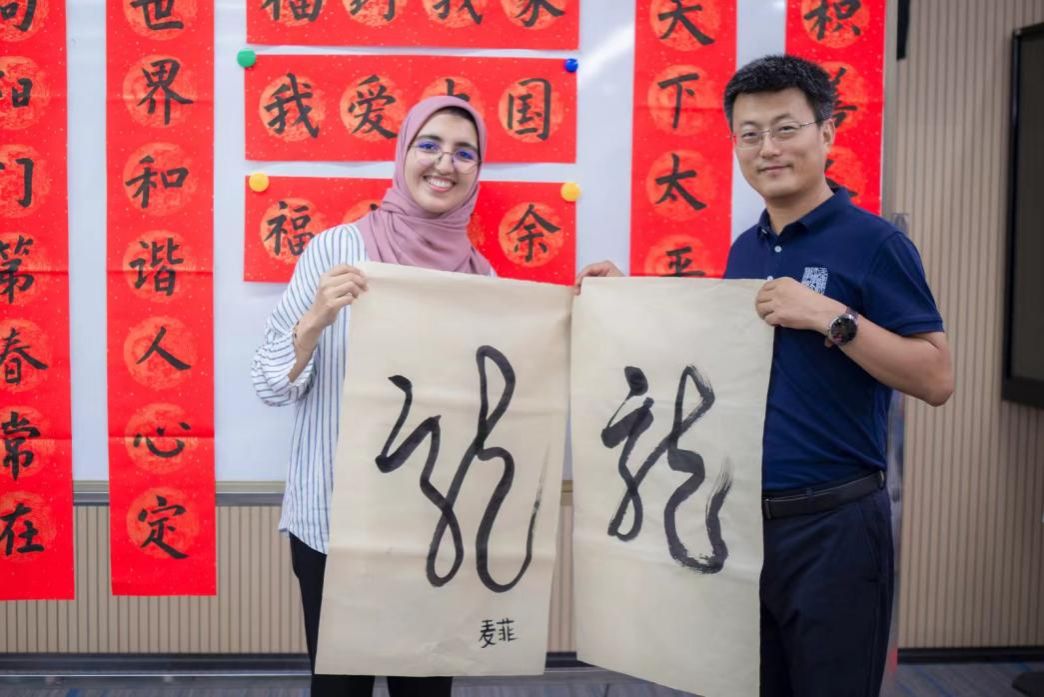 向阳门第春常在
世界和谐人心定
福到我家
我爱中国
福 余
天下太平
积善
龍
麦菲
龍